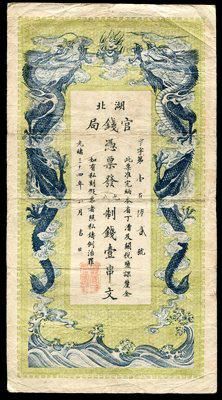 湖北
官錢局
字第 號
此票准完納本省丁漕及關稅鹽課釐金
憑票發制錢壹串文
如有私刻假票者照私鑄例治罪
光緒 十四年 月吉日